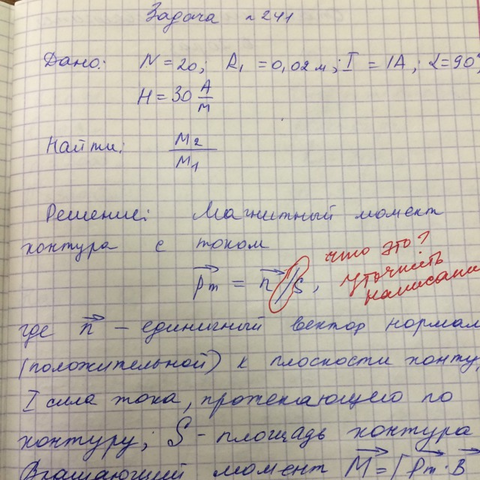 Задача №241
Дано: N = 20; R₁ = 0,02 м; I = 1А; α = 90°
H = 30 А/м
Найти: M₂/M₁
Решение: Магнитный момент
контура с током
pm = n I S, что это?
уточнить
написани
где n – единичный вектор нормал
(положительной) к плоскости конту
I сила тока, протекающего по
контуру; S - площадь контура
Вращающий момент M = [Pm · B